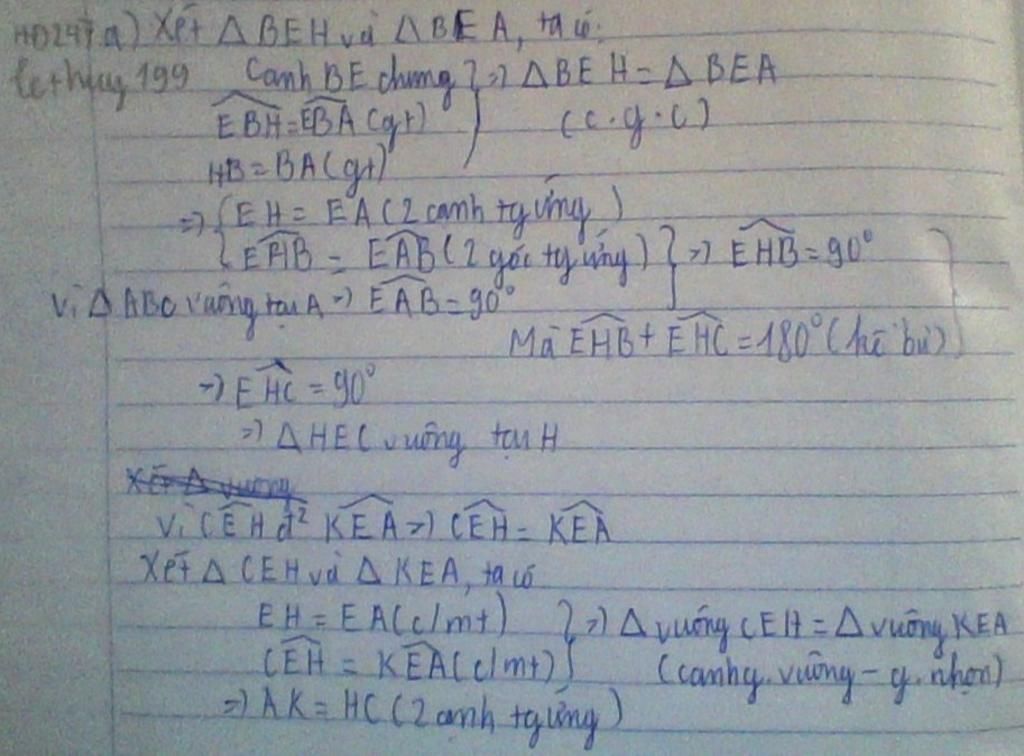 HD247 a) Xét Δ BEH và Δ BEA, ta có:
lethuy199 Cạnh BE chung } => Δ BEH = Δ BEA
EBH = EBA (gt) (c.g.c)
HB = BA (gt)
=> { EH = EA (2 cạnh tg ứng)
{ EHB = EAB (2 góc tg ứng) } => EHB = 90°
Vì Δ ABC vuông tại A => EAB = 90°
Mà EHB + EHC = 180° (kề bù)
=> EHC = 90°
=> Δ HEC vuông tại H
Xét Δ vuông
Vì CEH đ² KEA => CEH = KEA
Xét Δ CEH và Δ KEA, ta có
EH = EA (c/mt) } => Δ vuông CEH = Δ vuông KEA
CEH = KEA (c/mt) (cạnh g.vuông - g.nhọn)
=> AK = HC (2 cạnh tg ứng)